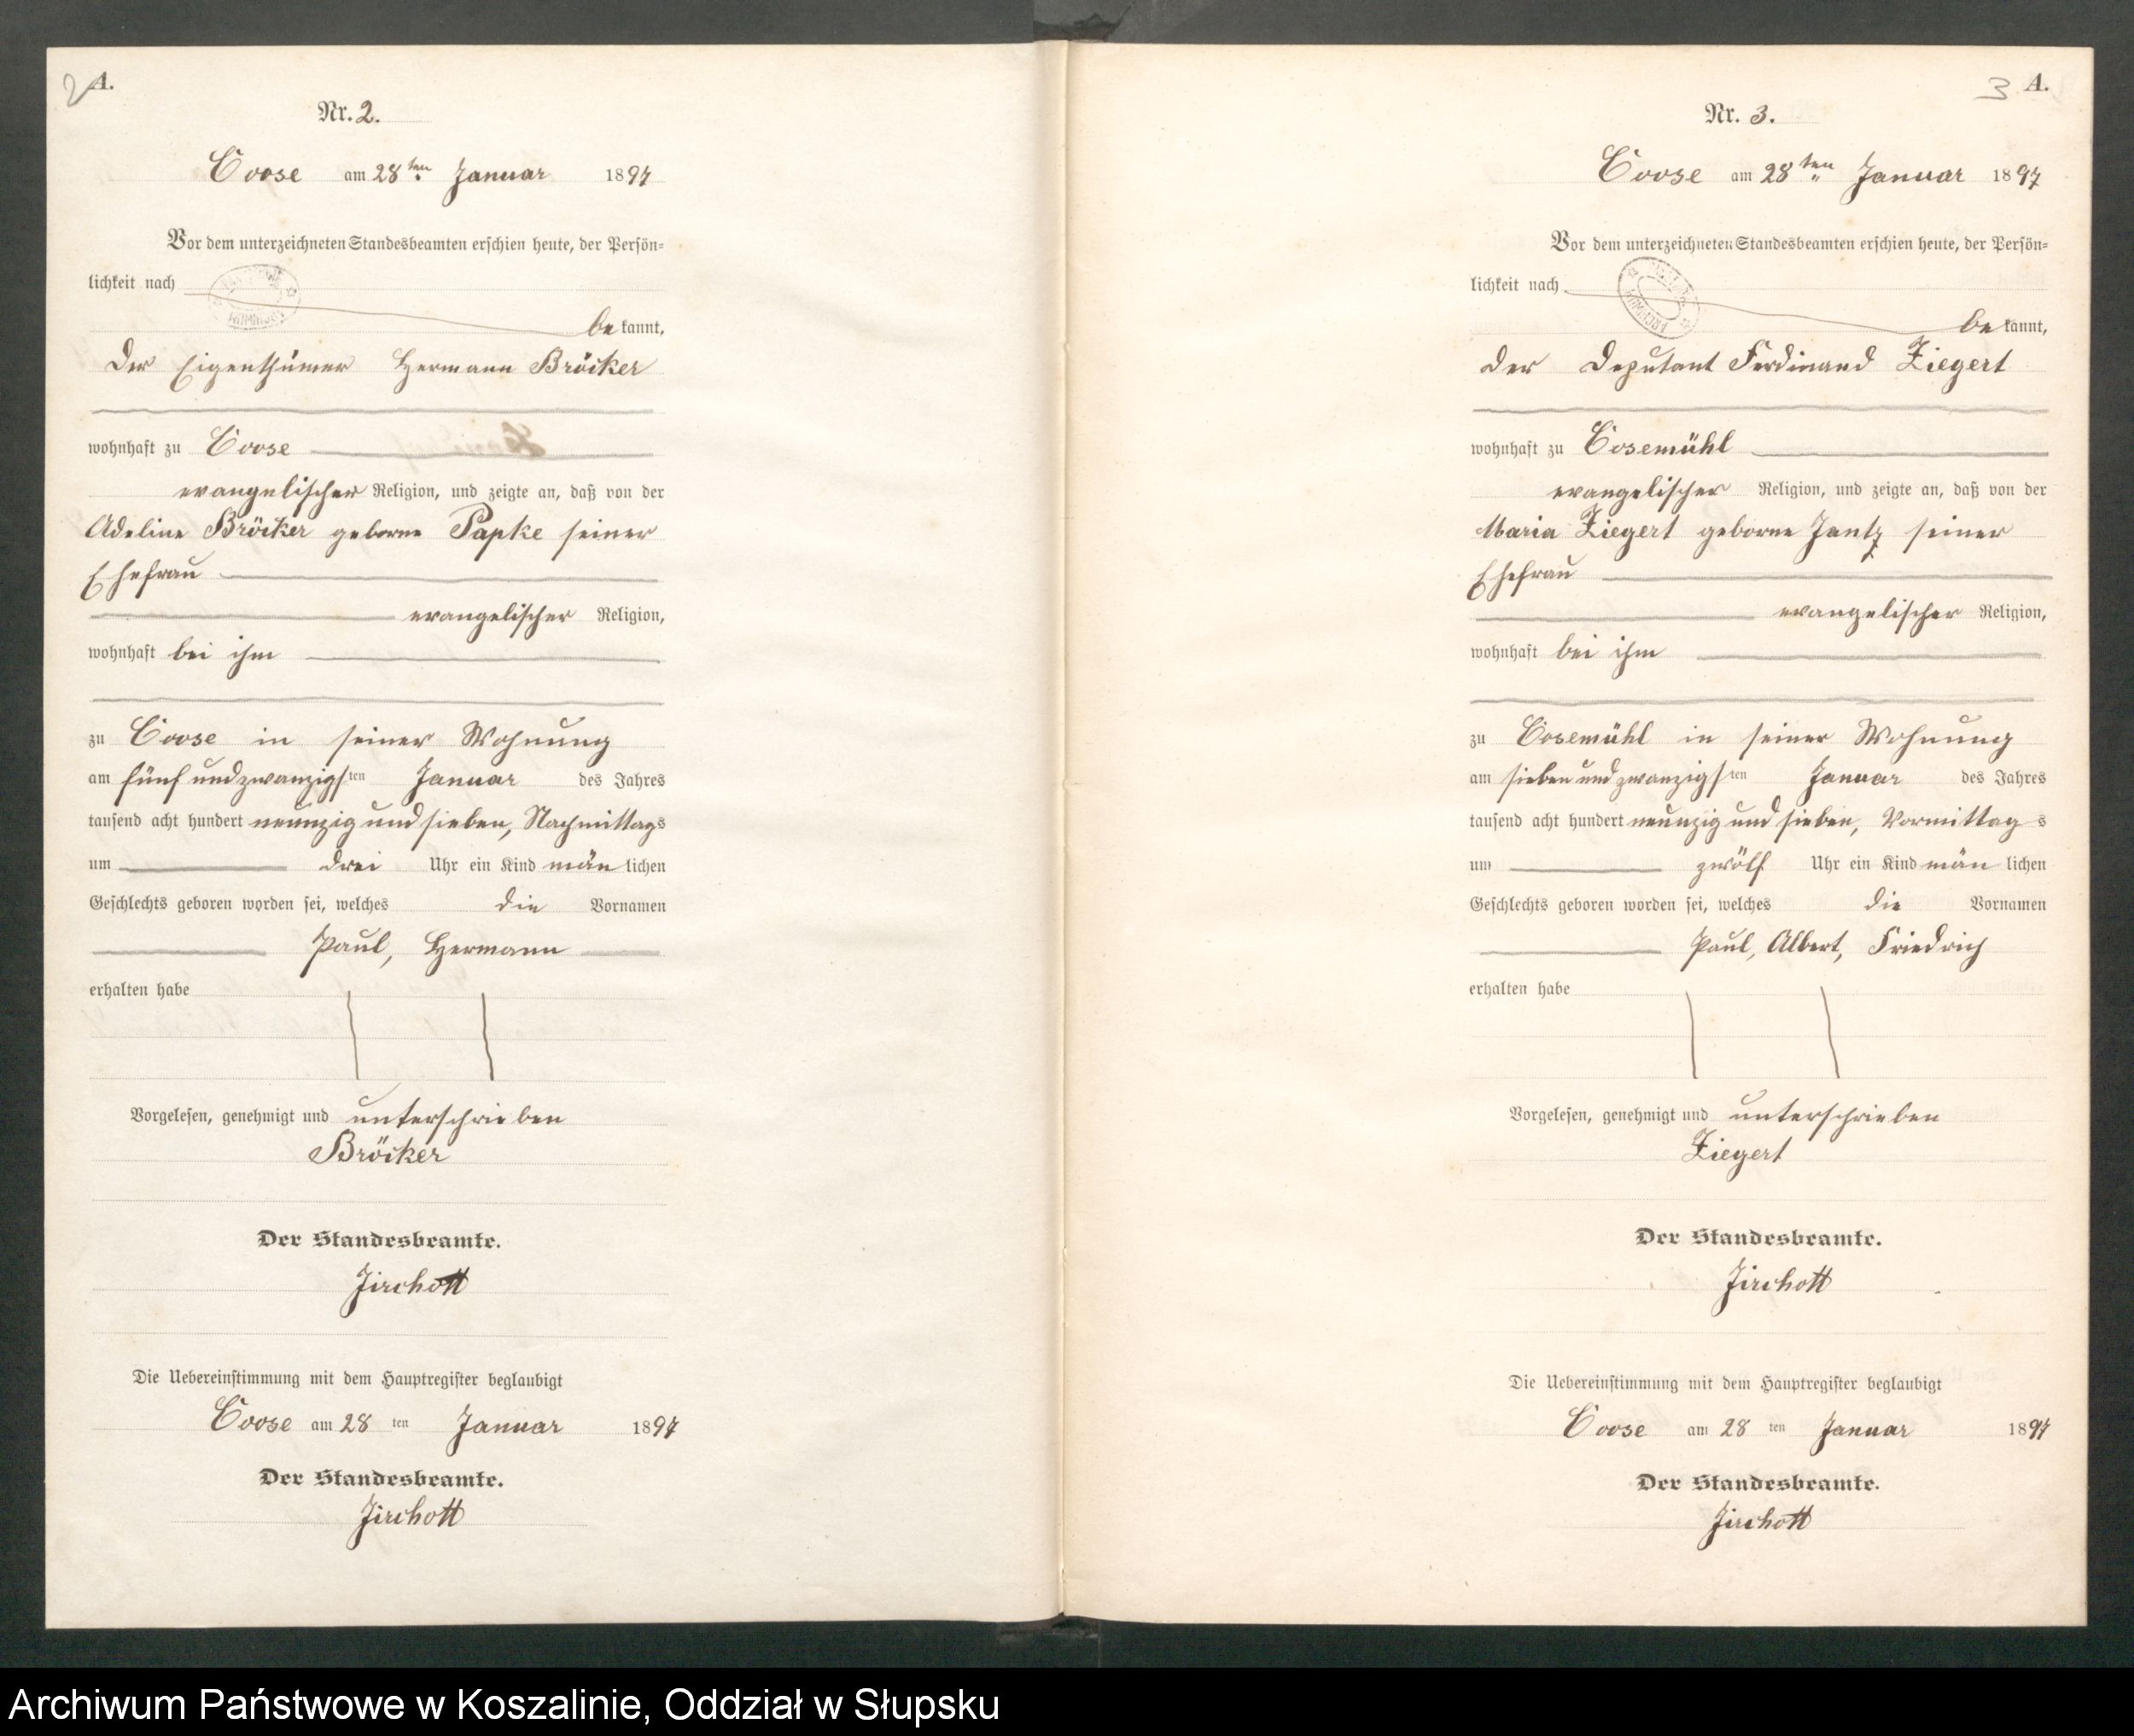 2 A.
Nr. 2.
Coose am 28ten Januar 1897
Vor dem unterzeichneten Standesbeamten erschien heute, der Persön=
lichkeit nach
be kannt,
der Eigenthümer Hermann Bröcker
wohnhaft zu Coose
evangelischer Religion, und zeigte an, daß von der
Adeline Bröcker geborne Papke seiner
Ehefrau
evangelischer Religion,
wohnhaft bei ihm
zu Coose in seiner Wohnung
am fünf und zwanzigsten Januar des Jahres
tausend acht hundert neunzig und sieben, Nachmittags
um drei Uhr ein Kind män lichen
Geschlechts geboren worden sei, welches die Vornamen
Paul, Hermann
erhalten habe
Vorgelesen, genehmigt und unterschrieben
Bröcker
Der Standesbeamte.
Jirchott
Die Uebereinstimmung mit dem Hauptregister beglaubigt
Coose am 28 ten Januar 1897
Der Standesbeamte.
Jirchott
3 A.
Nr. 3.
Coose am 28ten Januar 1897
Vor dem unterzeichneten Standesbeamten erschien heute, der Persön=
lichkeit nach
be kannt,
der Deputant Ferdinand Ziegert
wohnhaft zu Cosemühl
evangelischer Religion, und zeigte an, daß von der
Maria Ziegert geborne Jantz seiner
Ehefrau
evangelischer Religion,
wohnhaft bei ihm
zu Cosemühl in seiner Wohnung
am sieben und zwanzigsten Januar des Jahres
tausend acht hundert neunzig und sieben, Vormittags
um zwölf Uhr ein Kind män lichen
Geschlechts geboren worden sei, welches die Vornamen
Paul, Albert, Friedrich
erhalten habe
Vorgelesen, genehmigt und unterschrieben
Ziegert
Der Standesbeamte.
Jirchott
Die Uebereinstimmung mit dem Hauptregister beglaubigt
Coose am 28 ten Januar 1897
Der Standesbeamte.
Jirchott
Archiwum Państwowe w Koszalinie, Oddział w Słupsku